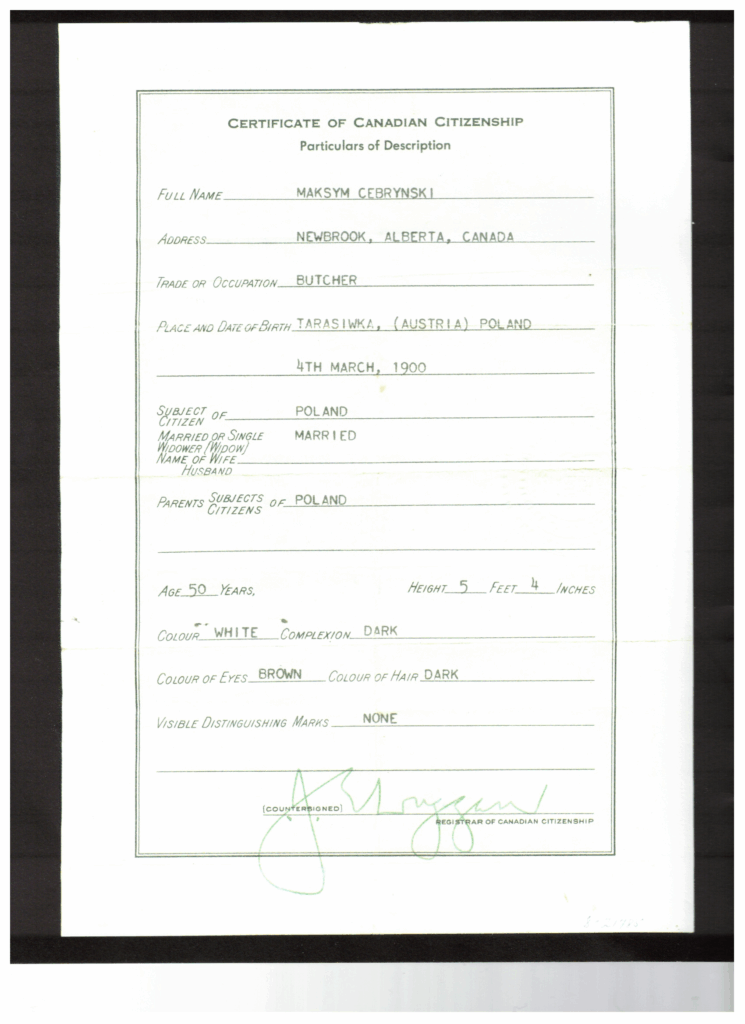 CERTIFICATE OF CANADIAN CITIZENSHIP
Particulars of Description
FULL NAME MAKSYM CEBRYNSKI
ADDRESS NEWBROOK, ALBERTA, CANADA
TRADE OR OCCUPATION BUTCHER
PLACE AND DATE OF BIRTH TARASIWKA, (AUSTRIA) POLAND
4TH MARCH, 1900
SUBJECT
CITIZEN OF POLAND
MARRIED OR SINGLE MARRIED
WIDOWER (WIDOW)
NAME OF WIFE
HUSBAND
PARENTS SUBJECTS
CITIZENS OF POLAND
AGE 50 YEARS, HEIGHT 5 FEET 4 INCHES
COLOUR WHITE COMPLEXION DARK
COLOUR OF EYES BROWN COLOUR OF HAIR DARK
VISIBLE DISTINGUISHING MARKS NONE
(COUNTERSIGNED)
REGISTRAR OF CANADIAN CITIZENSHIP